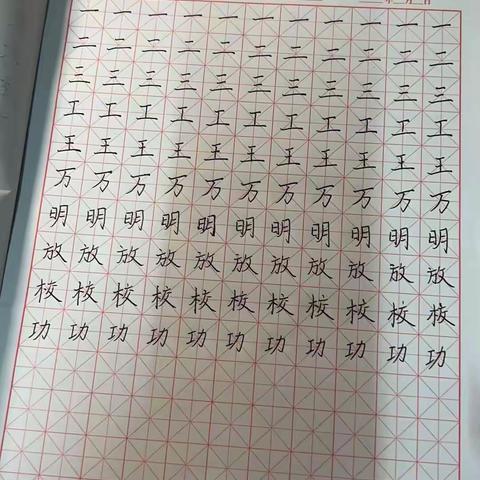 一一一一一一一一一一一
二二二二二二二二二二二
三三三三三三三三三三三
工工工工工工工工工工工
王王王王王王王王王王王
万万万万万万万万万万万
明明明明明明明明明明明
放放放放放放放放放放放
校校校校校校校校校校校
功功功功功功功功功功功